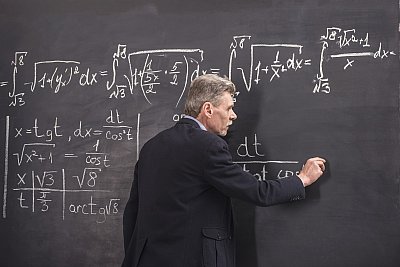 = ∫_√3^√8 √(1+(y')²) dx = ∫_√3^√8 √(1+(1/(5x/2) · 5/2)²) dx = ∫_√3^√8 √(1+1/x²) dx = ∫_√3^√8 √(x²+1)/x dx =
x = tgt , dx = dt/cos²t
√(x²+1) = 1/cost
x | √3 | √8
t | π/3 | arctg√8
dt